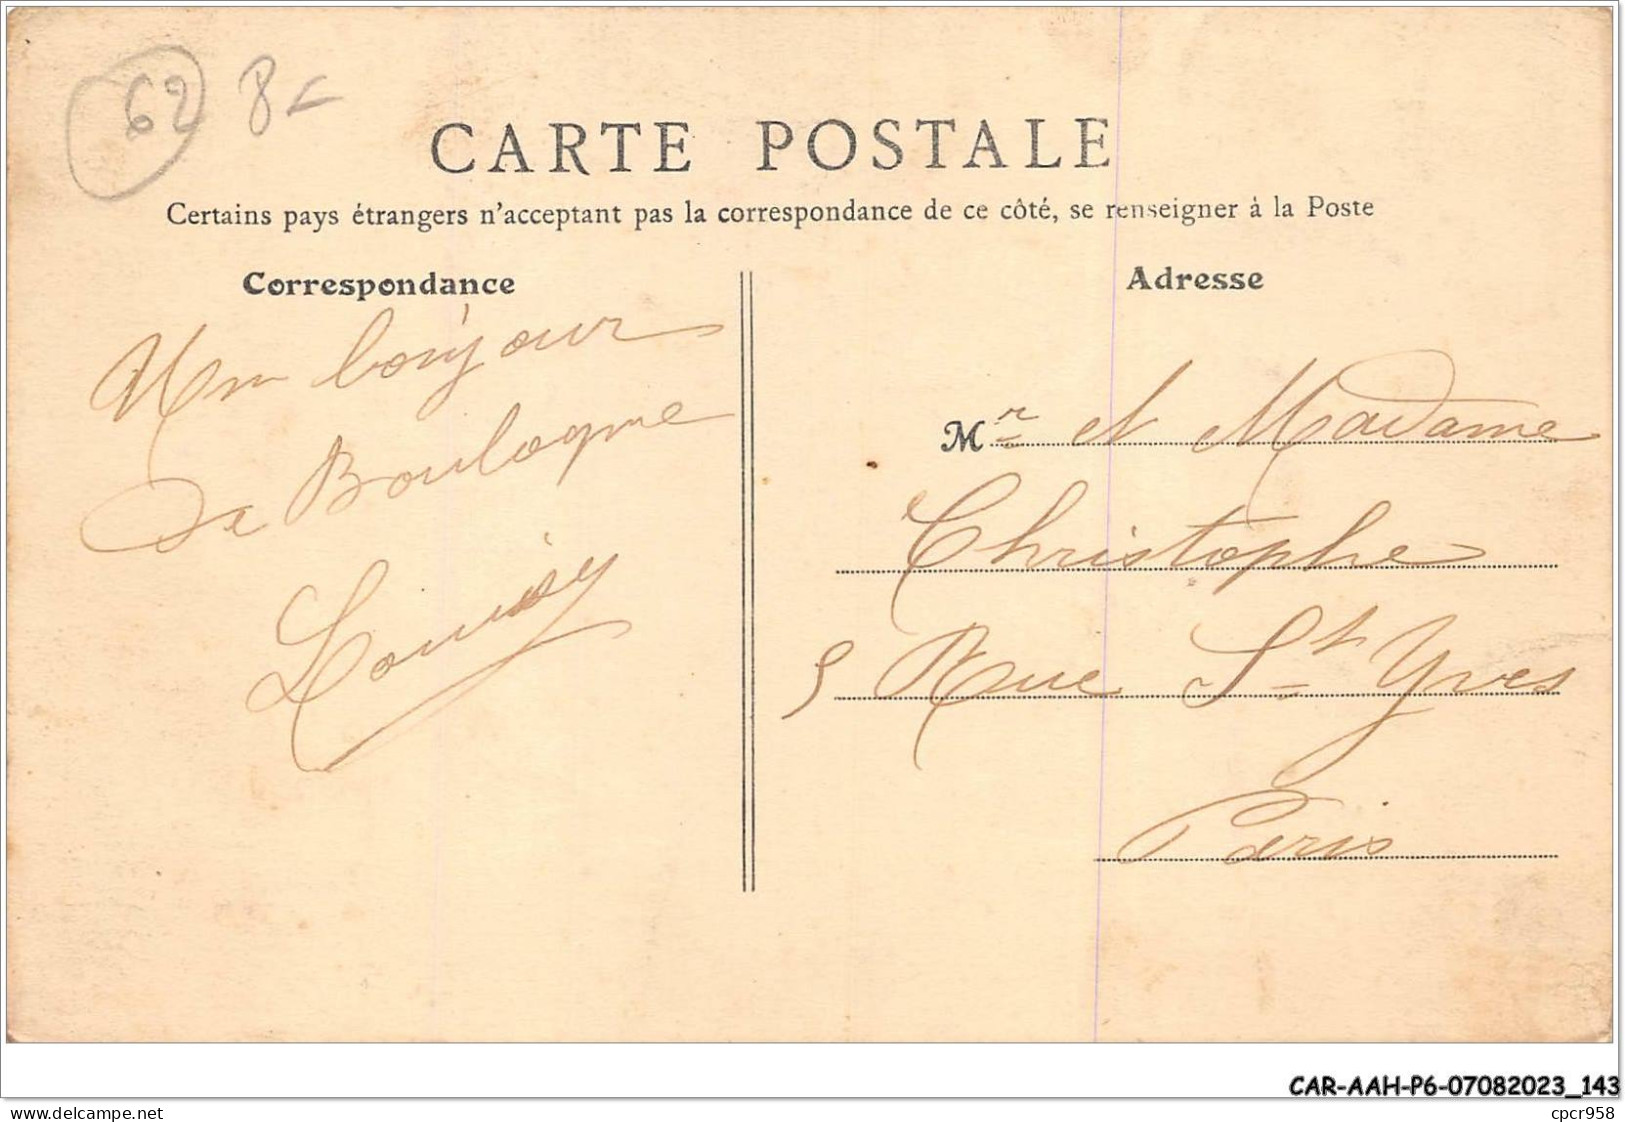 62 8-
CARTE POSTALE
Certains pays étrangers n'acceptant pas la correspondance de ce côté, se renseigner à la Poste
Correspondance
Un bonjour
de Boulogne
Louisy
Adresse
Mr et Madame
Christophe
5 Rue St Yves
Paris
CAR-AAH-P6-07082023_143
www.delcampe.net
cpcr958